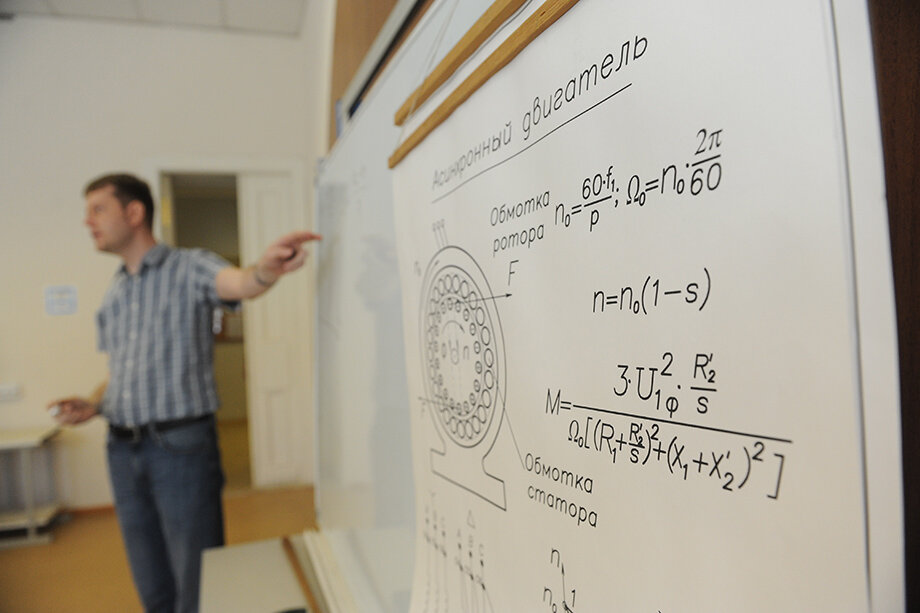 Асинхронный двигатель
Обмотка
ротора
n₀=60·f₁/p; Ω₀=n₀·2π/60
F
n=n₀(1-s)
n
M=3·U₁ф²·R₂'/s/Ω₀[(R₁+R₂'/s)²+(X₁+X₂')²]
Обмотка
статора
A B C
n
n₀ 1